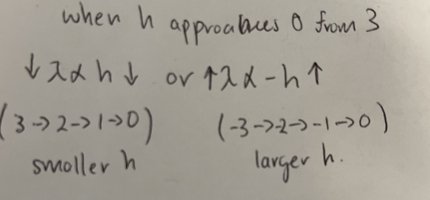 when h approaches 0 from 3
↓λ∝h↓ or ↑λ∝-h↑
(3→2→1→0) (-3→-2→-1→0)
smaller h larger h.